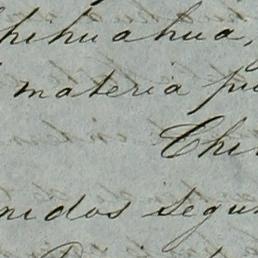 Chihuahua,
materia
Chi
nidos segu